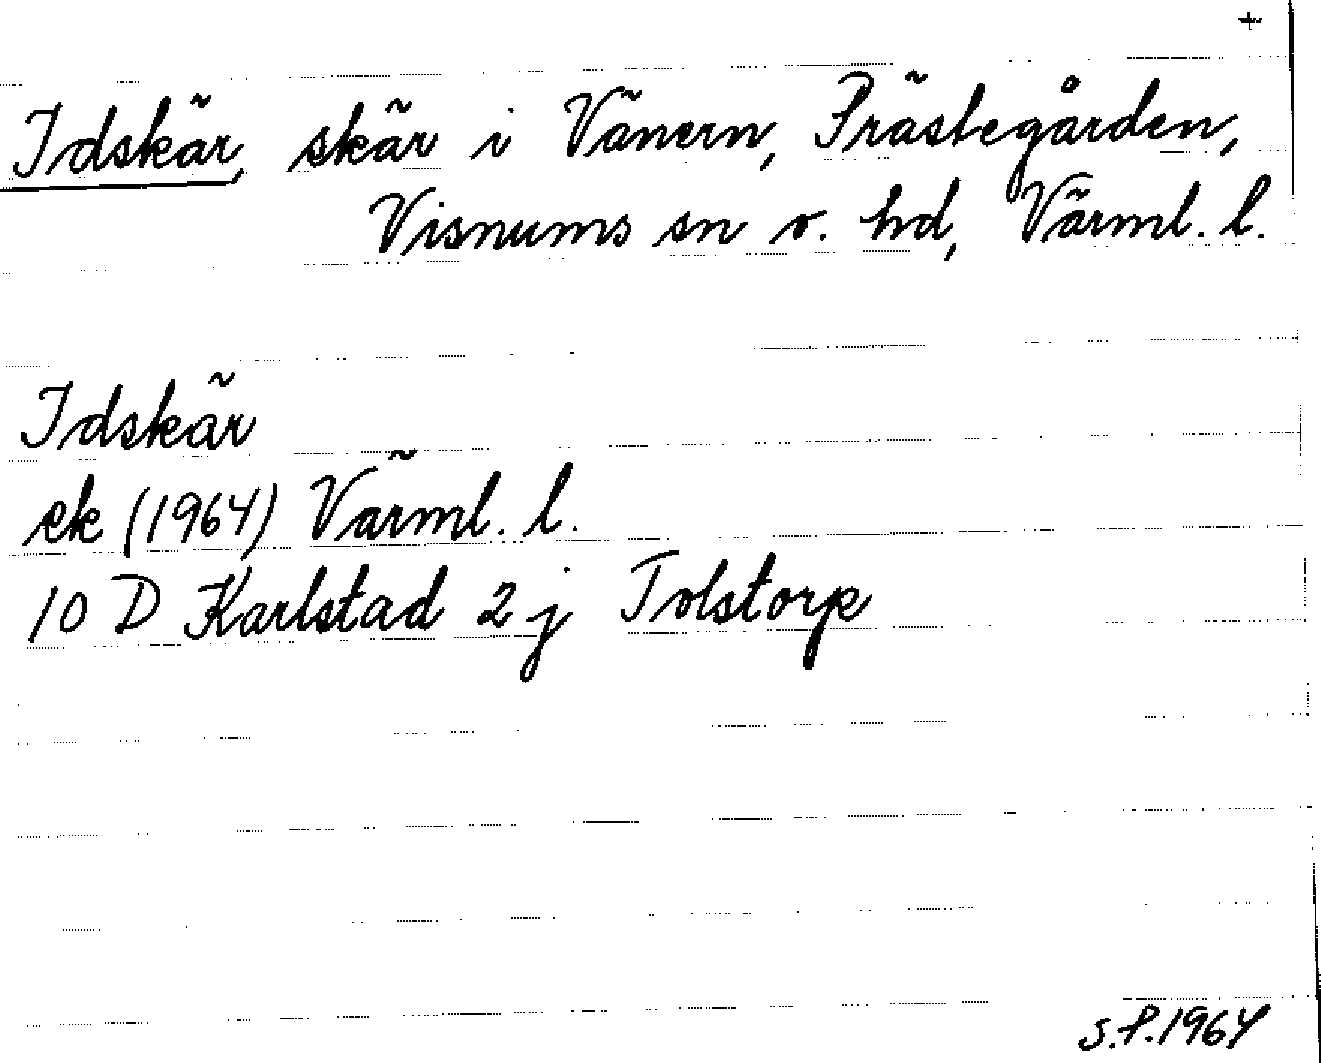 +
Idskär, skär i Vänern, Prästegården,
Visnums sn o. hd, Värml. l.
Idskär
ek (1964) Värml. l.
10 D Karlstad 2 j Tolstorp
S.P.1964